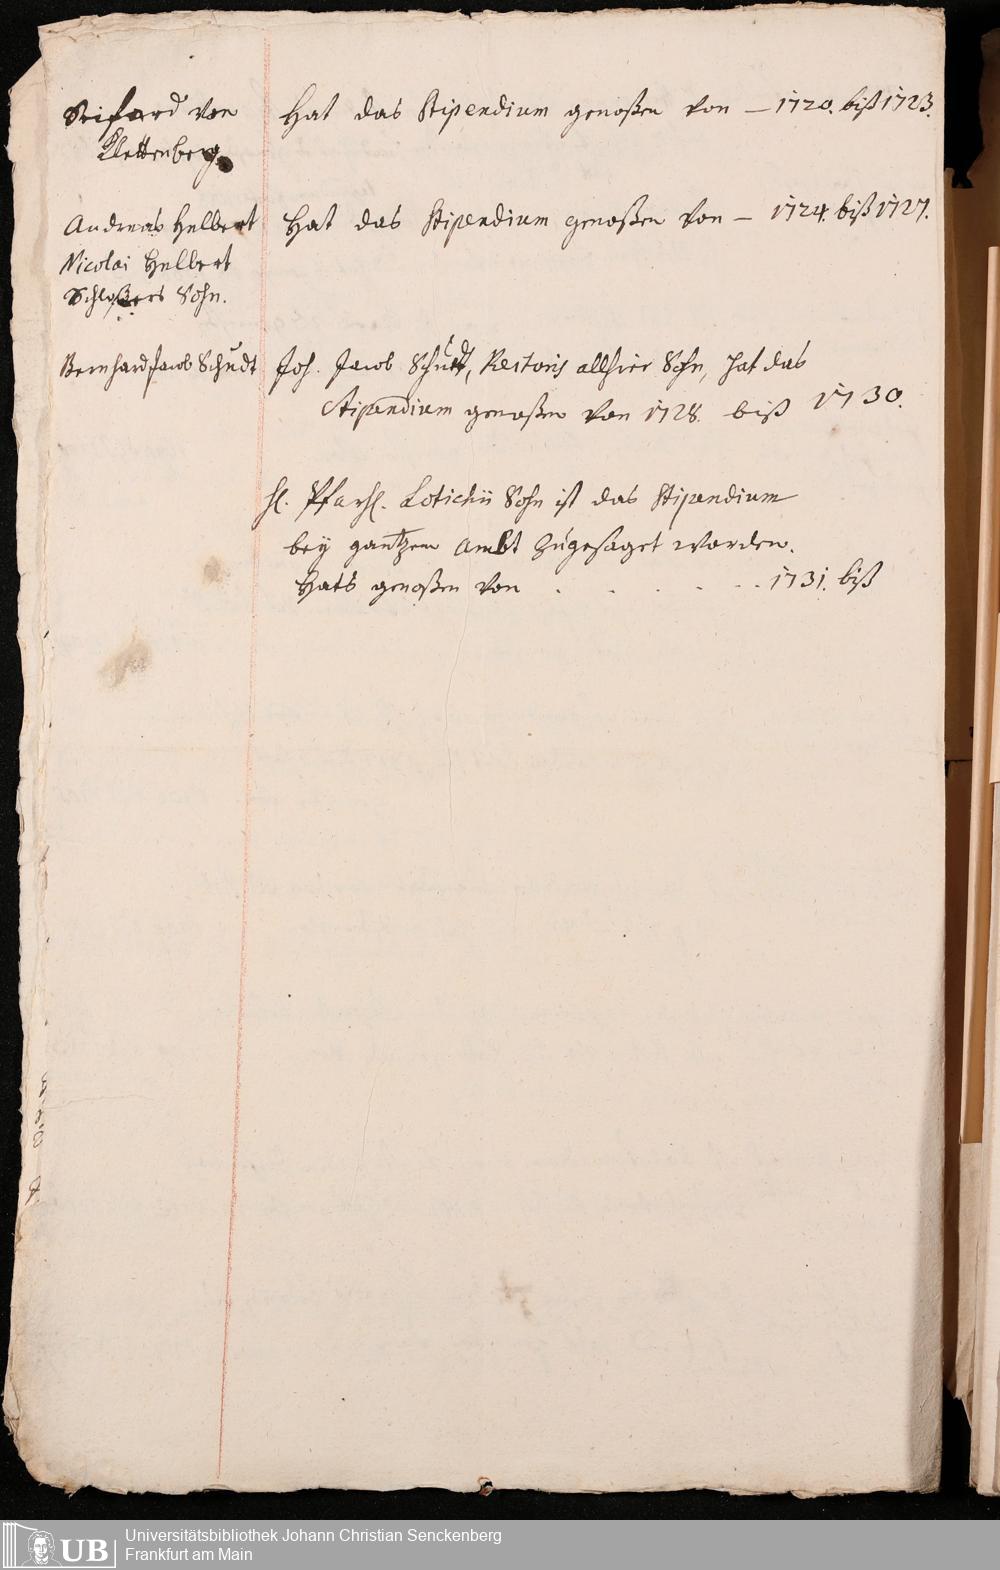 Seifard von
Klettenberg.
Hat das Stipendium genoßen von — 1720. biß 1723.
Andreas Helbert
Nicolai Helbert
Schloßers Sohn.
Hat das Stipendium genoßen von — 1724. biß 1727.
Bernhard Jacob Schudt
Joh. Jacob Schudt, Rectoris allhier Sohn, hat das
Stipendium genoßen von 1728. biß 1730.
H. Pfarh. Lotichii Sohn ist das Stipendium
bey gantzem Ambt zugesaget worden.
Hats genoßen von . . . . . 1731. biß
UB
Universitätsbibliothek Johann Christian Senckenberg
Frankfurt am Main